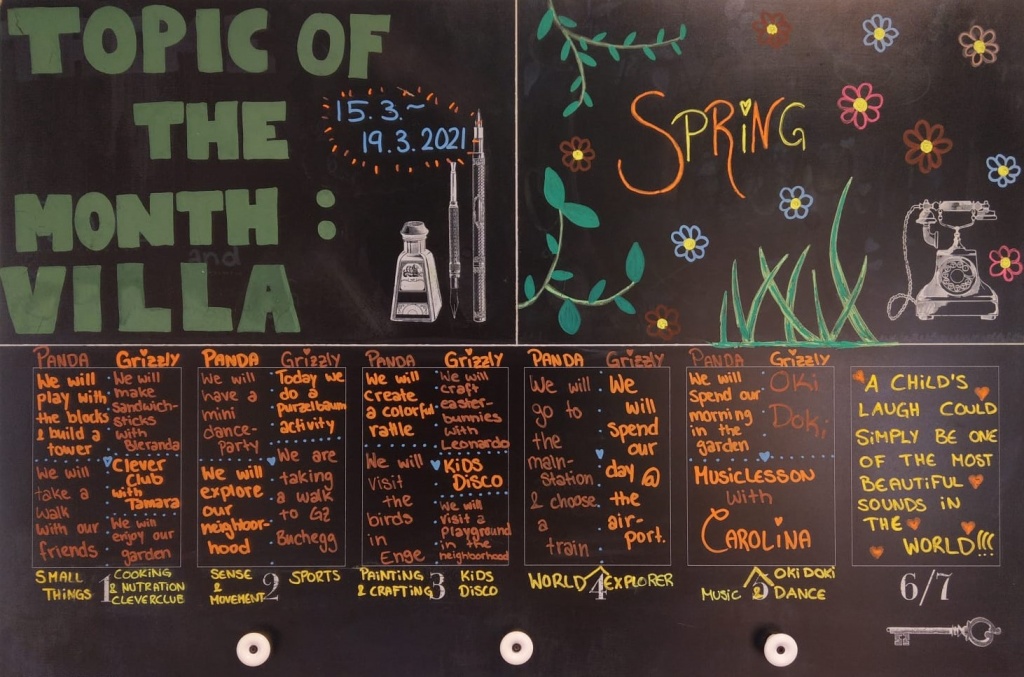 TOPIC OF
THE
MONTH:
and
VILLA
15.3.~
19.3.2021
SPRING
PANDA
We will
play with
the blocks
& build a
tower
We will
take a
walk
with our
friends
Grizzly
We will
make
sandwich-
sticks
with
Bieranda
Clever
Club
with
Tamara
We will
enjoy our
garden
SMALL
THINGS
1
COOKING
& NUTRATION
CLEVERCLUB
PANDA
We will
have a
mini
dance-
party
We will
explore
our
neighbor-
hood
Grizzly
Today we
do a
purzelbaum
activity
We are
taking
a walk
to GZ
Buchegg
SENSE
&
MOVEMENT
2
SPORTS
PANDA
We will
create
a colorful
rattle
We will
visit
the
birds
in
Enge
Grizzly
We will
craft
easter-
bunnies
with
Leonardo
KiDS
DiSCO
We will
visit a
playground
in the
neighborhood
PAiNTiNG
& CRAFTiNG
3
KiDS
DiSCO
PANDA
We will
go to
the
main-
station
& choose
a
train
Grizzly
We
will
spend
our
day @
the
air-
port.
WORLD
4
EXPLORER
PANDA
We will
spend our
morning
in the
garden
Grizzly
OKi
DOK,
MUSiCLESSON
with
CAROLiNA
MUSiC &
5
OKi DOKi
DANCE
A CHiLD'S
LAUGH COULD
SiMPLY BE ONE
OF THE MOST
BEAUTiFUL
SOUNDS iN
THE
WORLD!!!
6/7